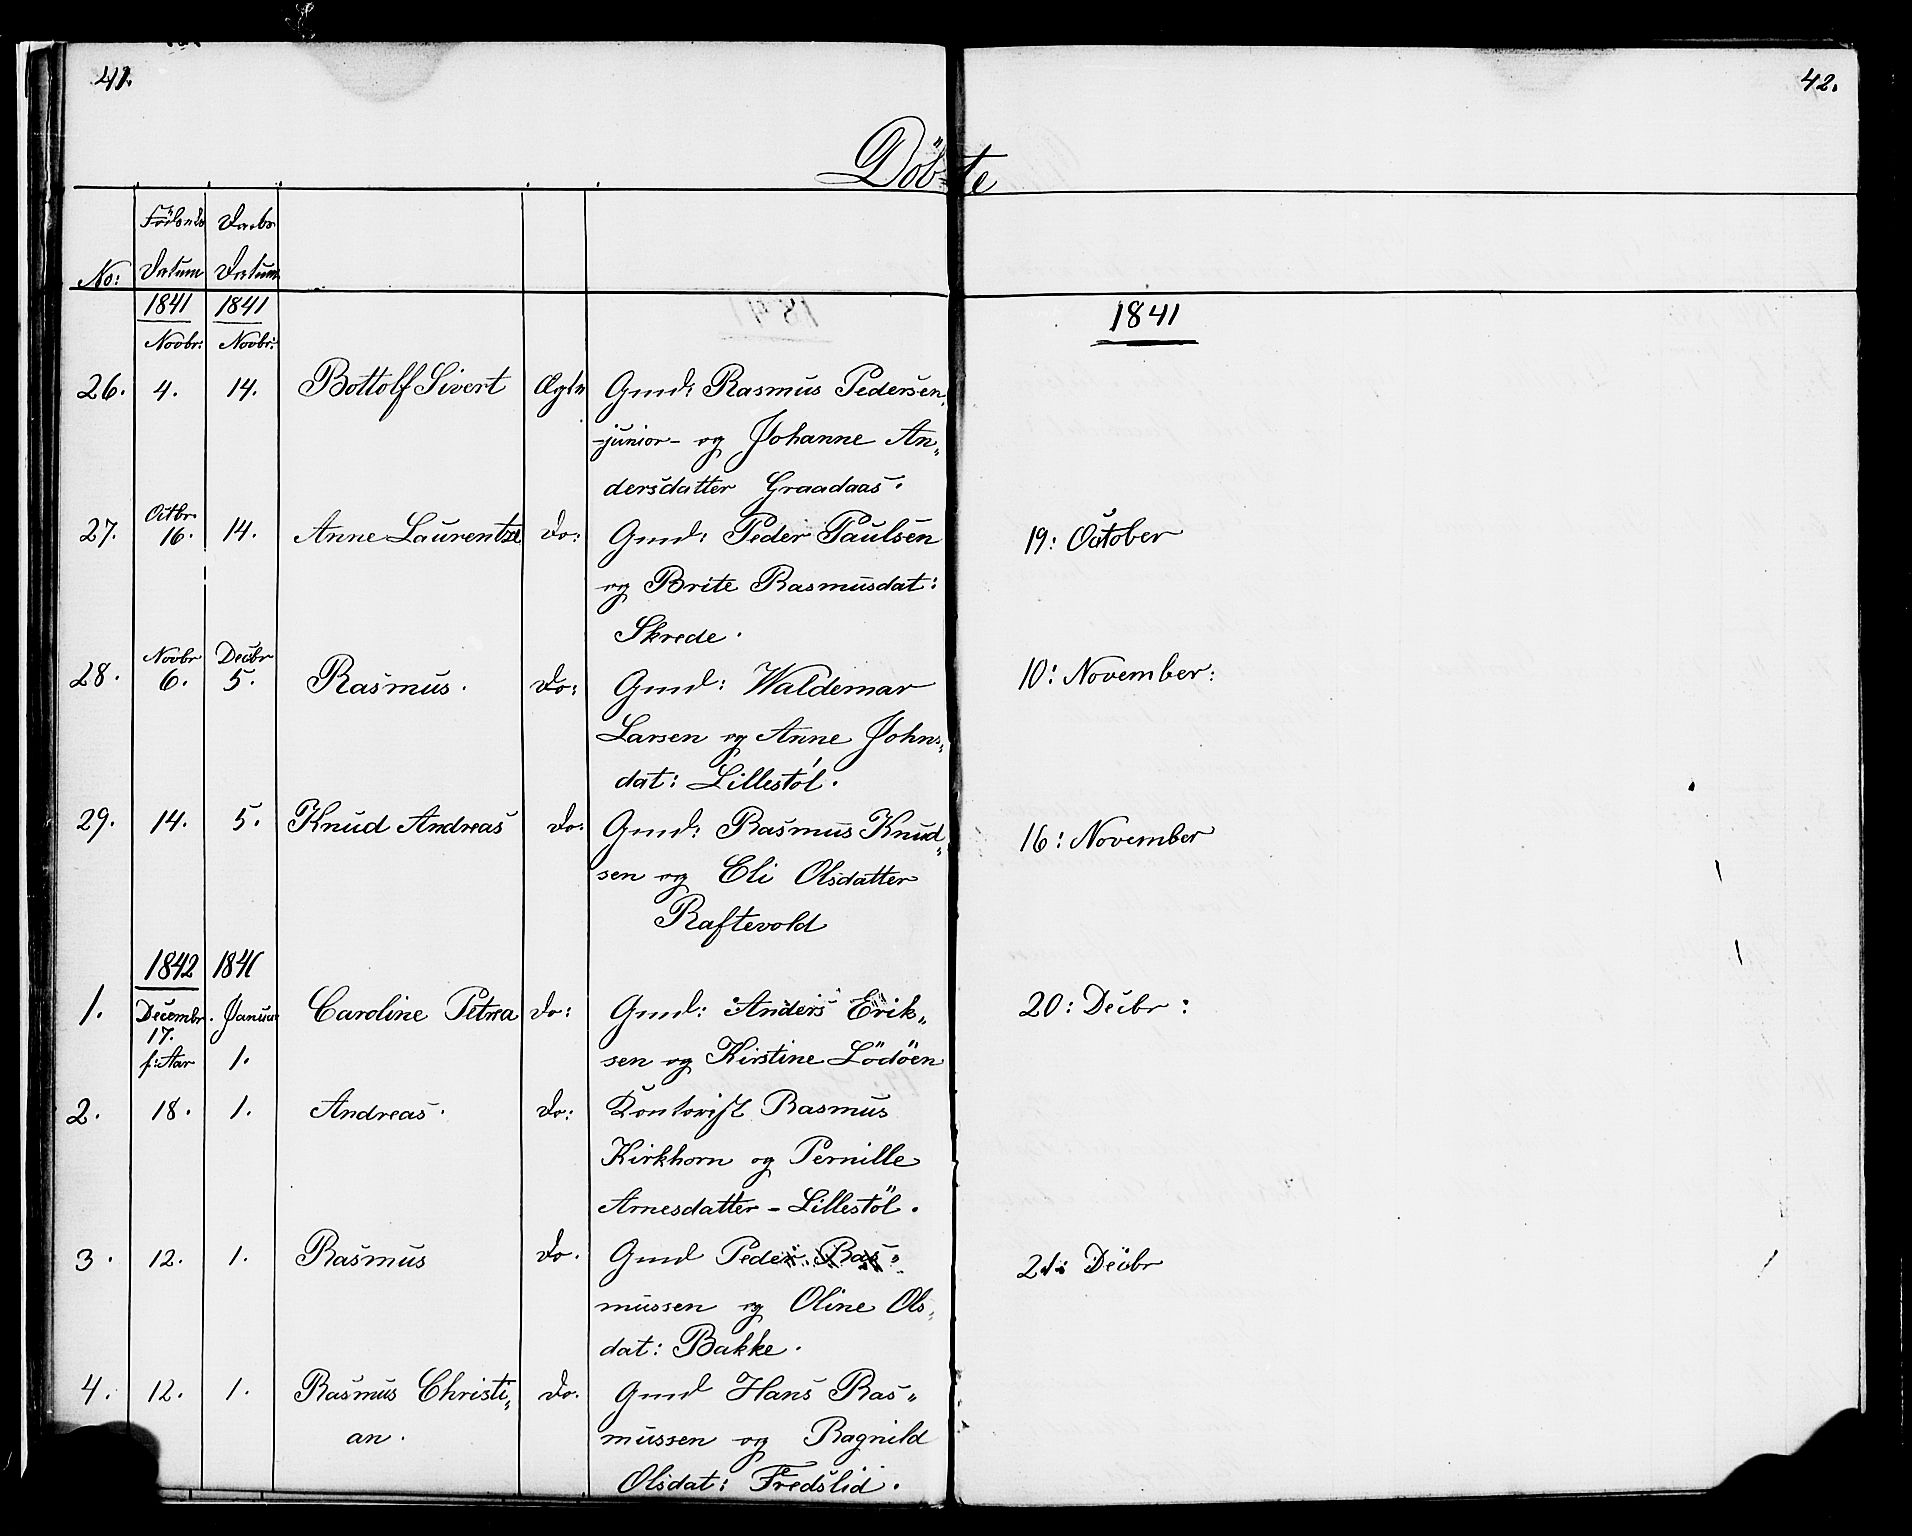 41.
42.
Döbte
No:
Födsels Datum
Daabs Datum
1841 1841
1841
Novbr: Novbr:
26. 4. 14. Bottolf Sivert Ægte Gmd: Rasmus Pedersen
-junior- og Johanne An„
dersdatter Graadaas.
Octbr.
27. 16. 14. Anne Laurentze do: Gmd: Peder Paulsen 19: October
og Brite Rasmusdat:
Skrede.
Novbr Decbr
28. 6. 5. Rasmus. do: Gmd: Waldemar 10: November:
Larsen og Anne Johns„
dat: Lillestöl.
29. 14. 5. Knud Andreas do: Gmd: Rasmus Knud„ 16: November
sen og Eli Olsdatter
Raftevold
1842 1841
1. Decembr. Januar Caroline Petrea do: Gmd: Anders Erik„ 20: Decbr:
17.
f: Aar 1. sen og Kirstine Lödöen
2. 18. 1. Andreas. do: Kontorist Rasmus
Kirkhorn og Pernille
Arnesdatter - Lillestöl.
3. 12. 1. Rasmus do. Gmd Peder Ras„ 21: Decbr
mussen og Oline Ols„
dat: Bakke.
4. 12. 1. Rasmus Christi„ do. Gmd Hans Ras„
an. mussen og Ragnild
Olsdat: Fredslid.